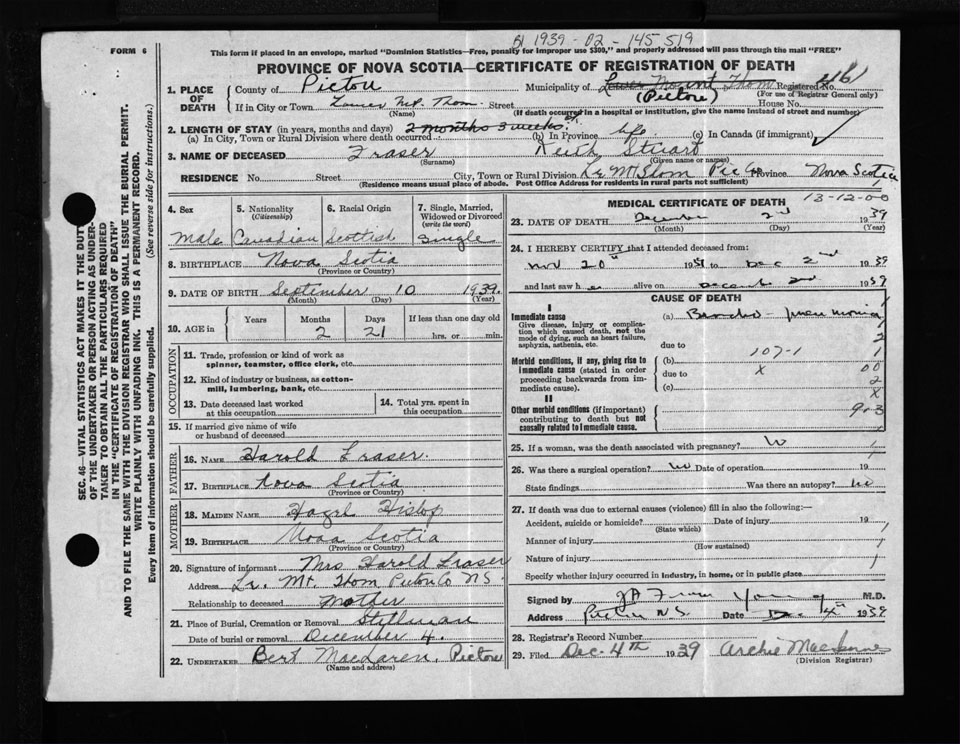 81 1939 - 02 - 145519
FORM 6
This form if placed in an envelope, marked "Dominion Statistics—Free, penalty for improper use $300," and properly addressed will pass through the mail "FREE"
PROVINCE OF NOVA SCOTIA—CERTIFICATE OF REGISTRATION OF DEATH
SEC. 46—VITAL STATISTICS ACT MAKES IT THE DUTY
OF THE UNDERTAKER OR PERSON ACTING AS UNDER-
TAKER TO OBTAIN ALL THE PARTICULARS REQUIRED
IN THE "CERTIFICATE OF REGISTRATION OF DEATH"
AND TO FILE THE SAME WITH THE DIVISION REGISTRAR WHO SHALL ISSUE THE BURIAL PERMIT.
WRITE PLAINLY WITH UNFADING INK. THIS IS A PERMANENT RECORD.
(See reverse side for instructions.)
Every item of information should be carefully supplied.
1. PLACE OF DEATH
County of Pictou Municipality of Lower Mount Thom Registered No. 461
(Pictou) (For use of Registrar General only)
If in City or Town Lower Mt. Thom Street House No.
(Name) (If death occurred in a hospital or institution, give the name instead of street and number)
2. LENGTH OF STAY (in years, months and days) 2 months 3 weeks
(a) In City, Town or Rural Division where death occurred (b) In Province life (c) In Canada (if immigrant)
3. NAME OF DECEASED Fraser Keith Stuart
(Surname) (Given name or names)
RESIDENCE No. Street City, Town or Rural Division Lr Mt Thom Pic Co Province Nova Scotia
(Residence means usual place of abode. Post Office Address for residents in rural parts not sufficient)
4. Sex 5. Nationality (Citizenship) 6. Racial Origin 7. Single, Married, Widowed or Divorced (write the word)
Male Canadian Scottish Single
8. BIRTHPLACE Nova Scotia
(Province or Country)
9. DATE OF BIRTH September 10 1939.
(Month) (Day) (Year)
10. AGE in Years Months Days If less than one day old
2 21 hrs. or min.
OCCUPATION
11. Trade, profession or kind of work as spinner, teamster, office clerk, etc.
12. Kind of industry or business, as cotton-mill, lumbering, bank, etc.
13. Date deceased last worked at this occupation
14. Total yrs. spent in this occupation
15. If married give name of wife or husband of deceased
FATHER
16. NAME Harold Fraser.
17. BIRTHPLACE Nova Scotia
(Province or Country)
MOTHER
18. MAIDEN NAME Hazel Hislop
19. BIRTHPLACE Nova Scotia
(Province or Country)
20. Signature of informant Mrs Harold Fraser
Address Lr. Mt. Thom Pictou Co N.S.
Relationship to deceased Mother
21. Place of Burial, Cremation or Removal Stillman
Date of burial or removal December 4.
22. UNDERTAKER Bert MacLaren, Pictou
(Name and address)
MEDICAL CERTIFICATE OF DEATH
13-12-00
23. DATE OF DEATH December 2nd 1939
(Month) (Day) (Year)
24. I HEREBY CERTIFY that I attended deceased from:
Nov 20th 1939 to Dec 2nd 1939
and last saw h alive on December 2nd 1939
CAUSE OF DEATH
I
Immediate cause
Give disease, injury or complication which caused death, not the mode of dying, such as heart failure, asphyxia, asthenia, etc.
(a) Broncho-pneumonia
due to
2
Morbid conditions, if any, giving rise to immediate cause (stated in order proceeding backwards from immediate cause).
(b) 107-1 1
due to X 00
(c) 2
X
II
Other morbid conditions (if important) contributing to death but not causally related to immediate cause.
9-3
25. If a woman, was the death associated with pregnancy?
26. Was there a surgical operation? No Date of operation 19
State findings Was there an autopsy? No
27. If death was due to external causes (violence) fill in also the following:—
Accident, suicide or homicide? Date of injury 19
(State which)
Manner of injury
(How sustained)
Nature of injury
Specify whether injury occurred in industry, in home, or in public place
Signed by Young M.D.
Address Pictou N.S. Date Dec 4th 1939
28. Registrar's Record Number
29. Filed Dec. 4th 1939 Archie
(Division Registrar)